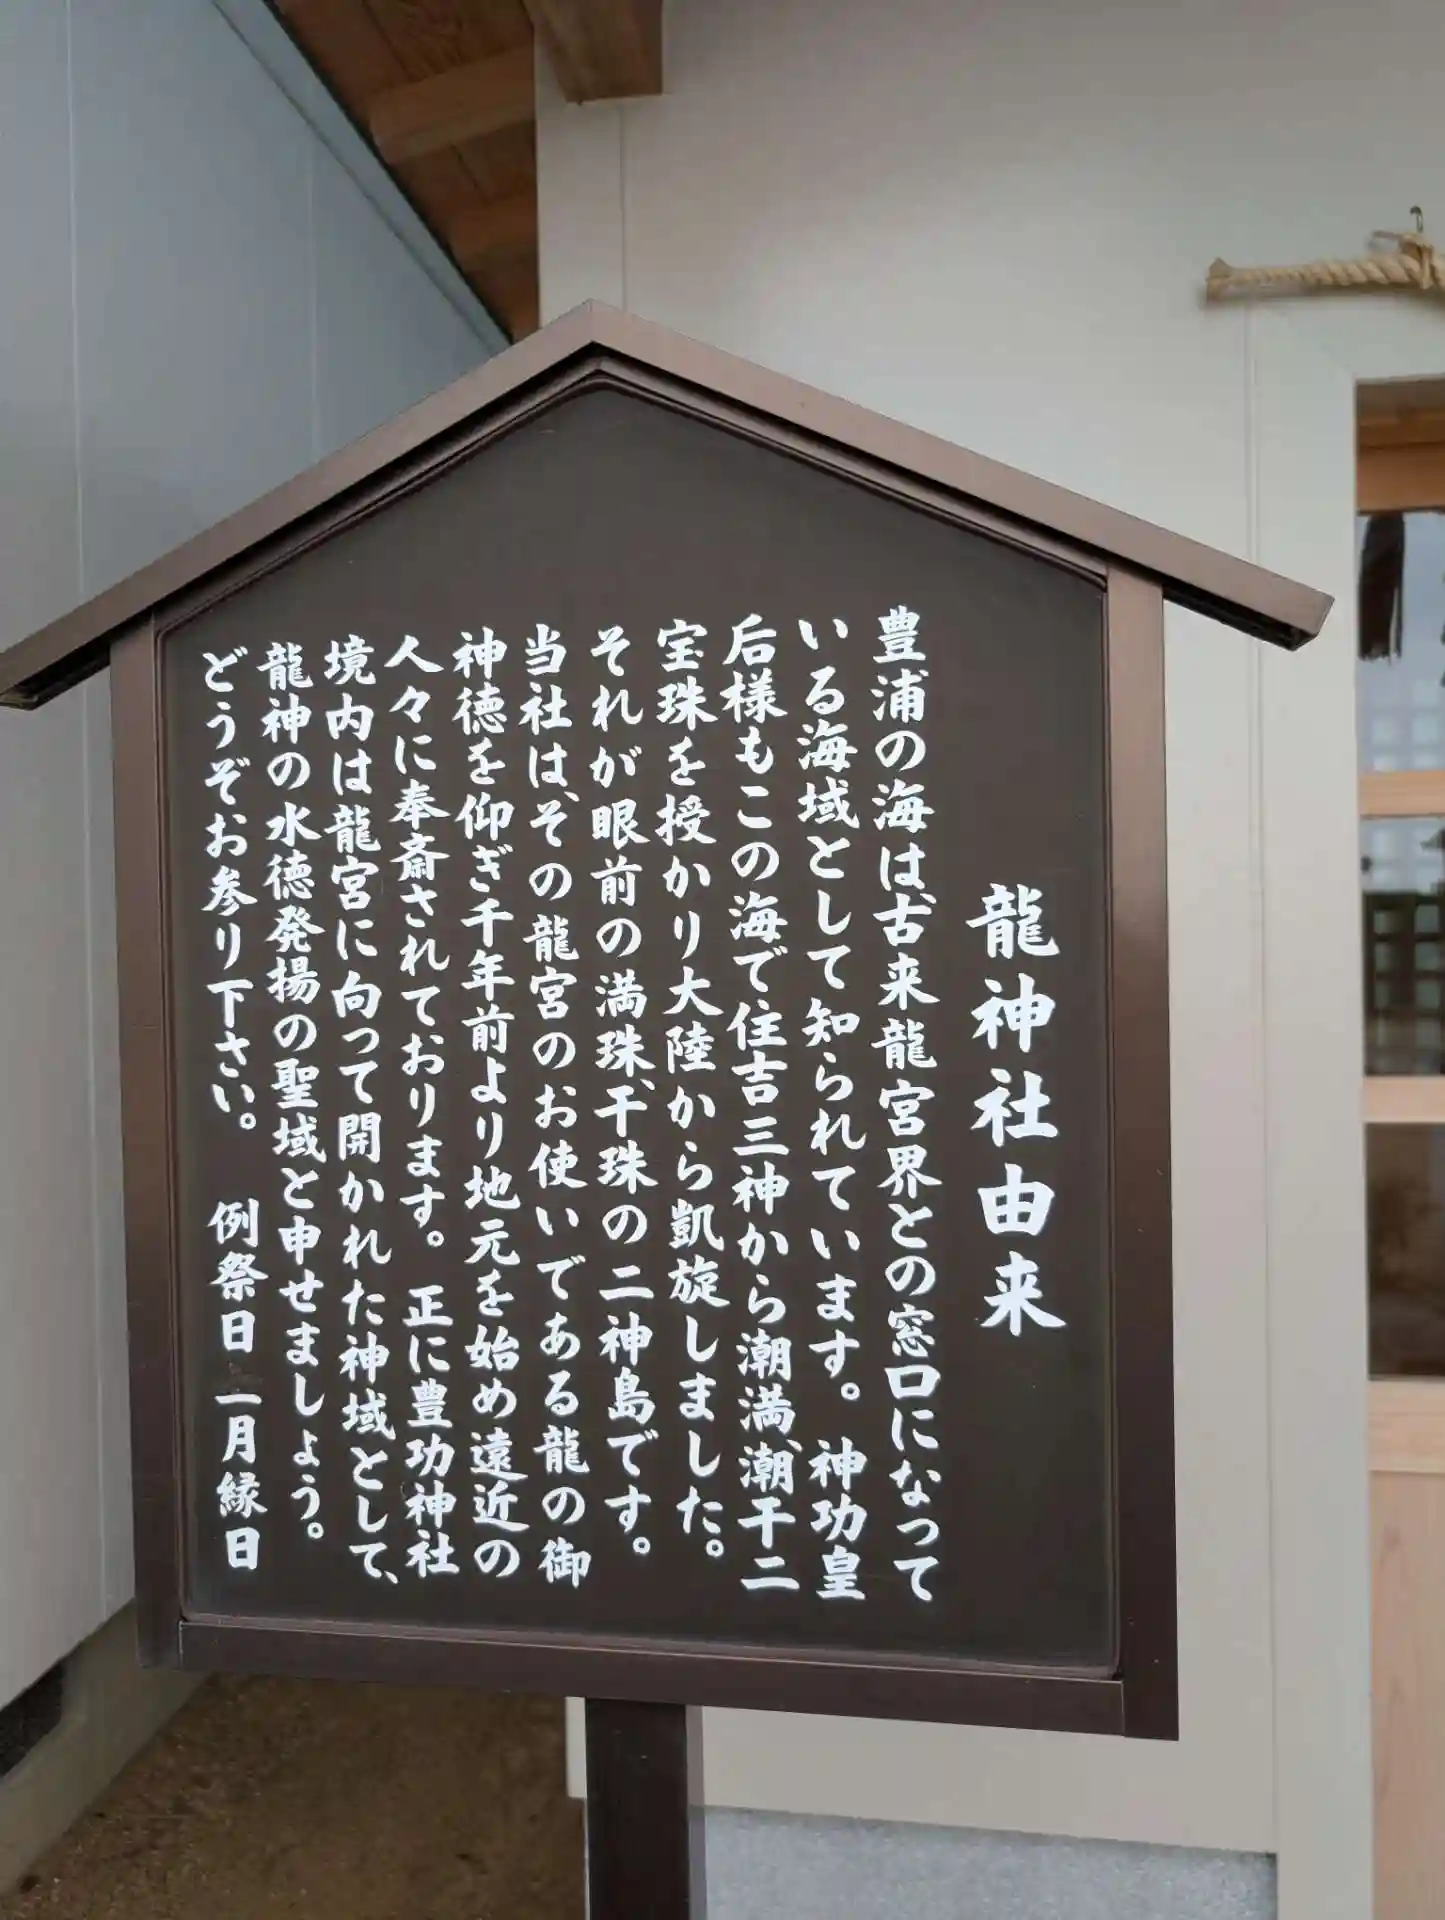 龍神社由来
豊浦の海は、古来龍宮界との窓口になって
いる海域として知られています。神功皇
后様もこの海で住吉三神から潮満、潮干二
宝珠を授かり大陸から凱旋しました。
それが眼前の満珠、干珠の二神島です。
当社は、その龍宮のお使いである龍の御
神徳を仰ぎ千年前より地元を始め遠近の
人々に奉斎されております。正に豊功神社
境内は龍宮に向って開かれた神域として、
龍神の水徳発揚の聖域と申せましょう。
どうぞお参り下さい。 例祭日 一月縁日